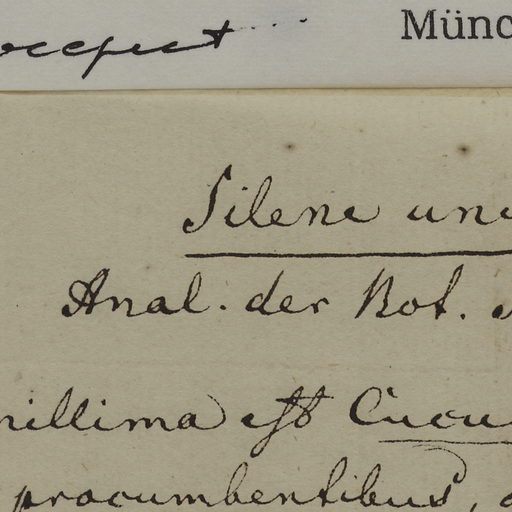 Münc
Silene un
Anal. der Bot.
millima est Cucu
procumbentibus,